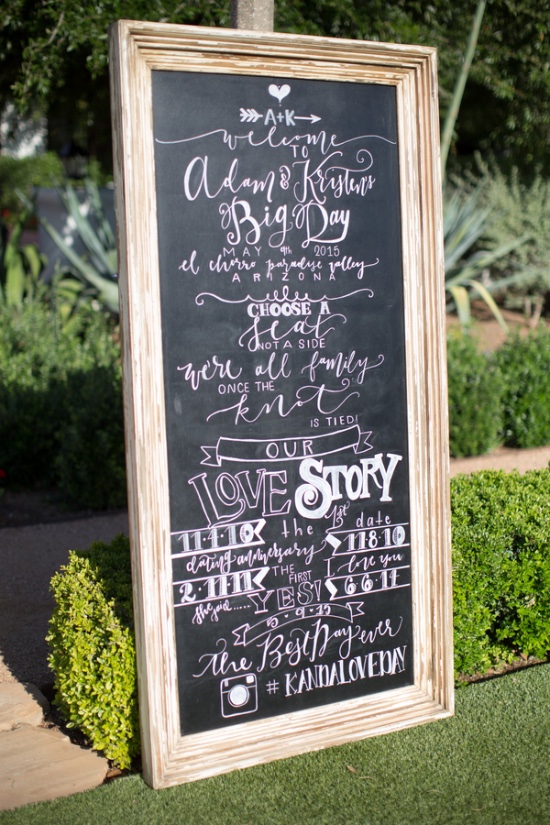 A+K
welcome
TO
Adam & Kristen's
Big Day
MAY 9th 2015
el chorro paradise valley
ARIZONA
CHOOSE A
seat
NOT A SIDE
we're all family
ONCE THE
knot
IS TIED!
OUR
LOVE STORY
11·4·10 the 1st date
dating anniversary 11·8·10
2·11·11 THE FIRST I love you
she said..... YES! 6·6·14
5·9·15
the Best Day ever
#KANDALOVEDAY